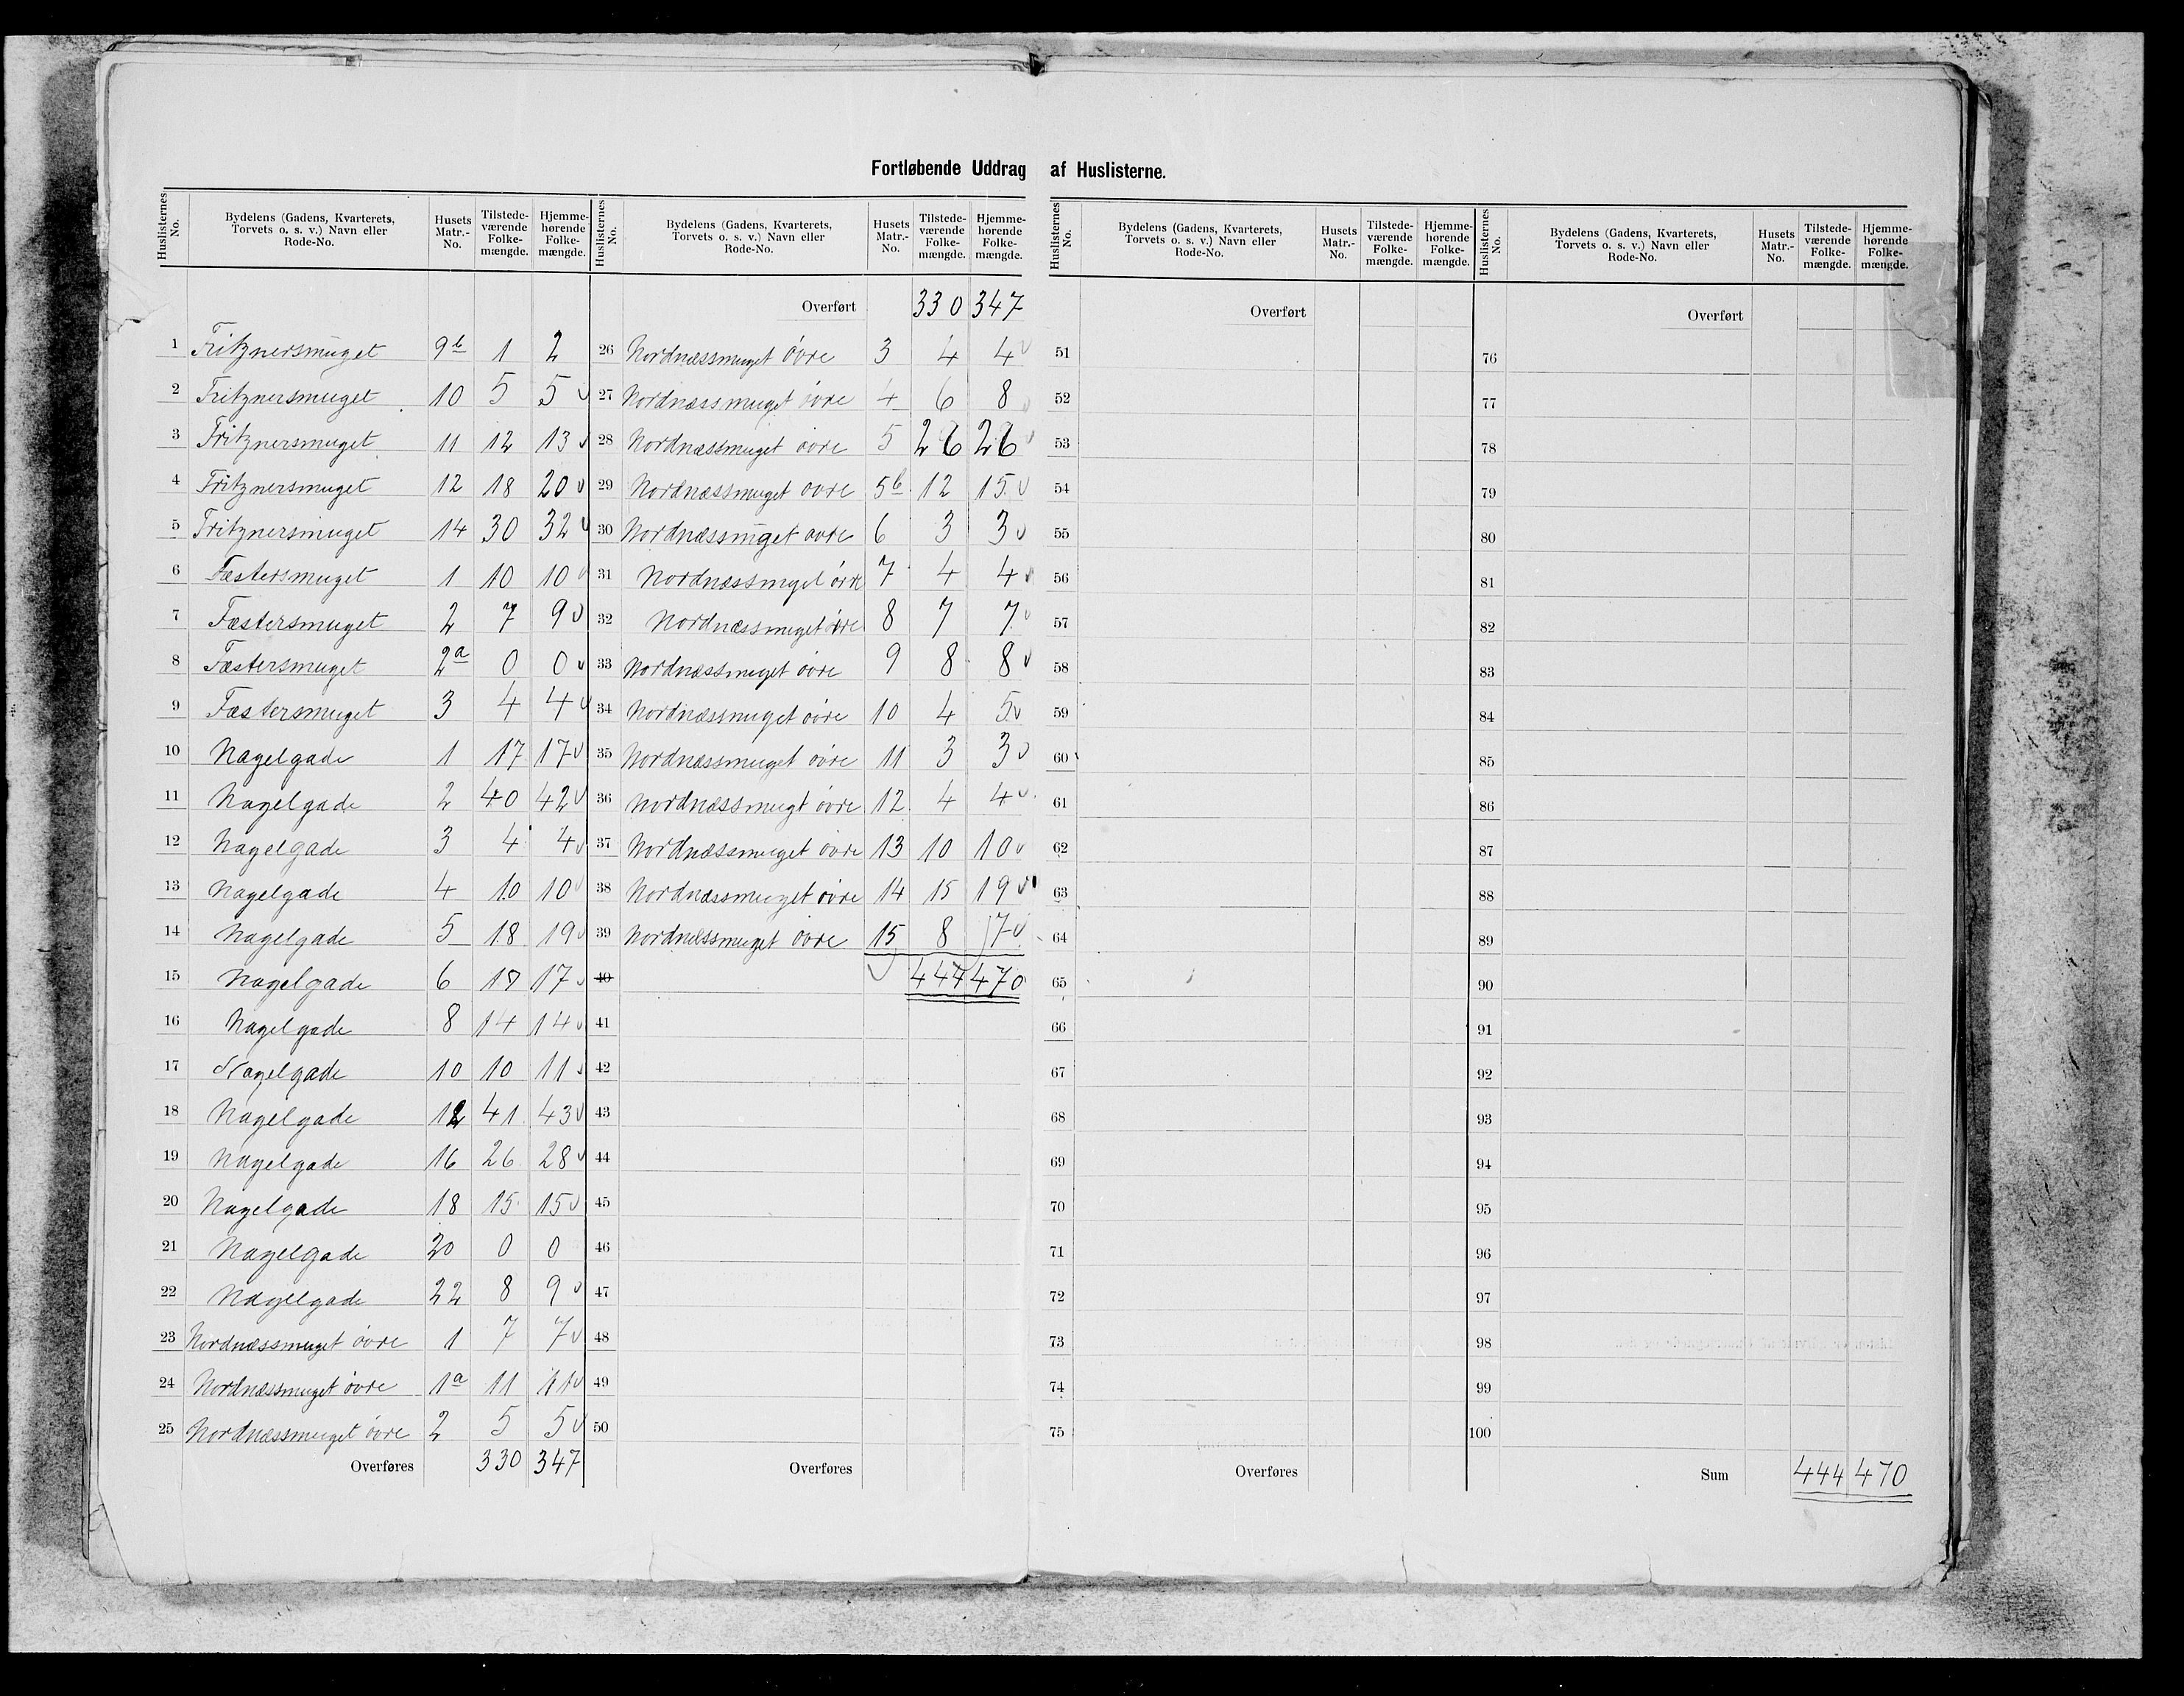 Fortløbende Uddrag af Huslisterne.
Huslisternes No. | Bydelens (Gadens, Kvarterets, Torvets o. s. v.) Navn eller Rode-No. | Husets Matr.-No. | Tilstedeværende Folkemængde. | Hjemmehørende Folkemængde.
1 Fritznersmuget 9b 1 2
2 Fritznersmuget 10 5 5
3 Fritznersmuget 11 12 13
4 Fritznersmuget 12 18 20
5 Fritznersmuget 14 30 32
6 Fæstersmuget 1 10 10
7 Fæstersmuget 2 7 9
8 Fæstersmuget 2a 0 0
9 Fæstersmuget 3 4 4
10 Nagelgade 1 17 17
11 Nagelgade 2 40 42
12 Nagelgade 3 4 4
13 Nagelgade 4 10 10
14 Nagelgade 5 18 19
15 Nagelgade 6 17 17
16 Nagelgade 8 14 14
17 Nagelgade 10 10 11
18 Nagelgade 12 41 43
19 Nagelgade 16 26 28
20 Nagelgade 18 15 15
21 Nagelgade 20 0 0
22 Nagelgade 22 8 9
23 Nordnæssmuget övre 1 7 7
24 Nordnæssmuget övre 1a 11 11
25 Nordnæssmuget övre 2 5 5
Overføres 330 347
Huslisternes No. | Bydelens (Gadens, Kvarterets, Torvets o. s. v.) Navn eller Rode-No. | Husets Matr.-No. | Tilstedeværende Folkemængde. | Hjemmehørende Folkemængde.
Overført 330 347
26 Nordnæssmuget övre 3 4 4
27 Nordnæssmuget övre 4 6 8
28 Nordnæssmuget övre 5 26 26
29 Nordnæssmuget övre 5b 12 15
30 Nordnæssmuget övre 6 3 3
31 Nordnæssmuget övre 7 4 4
32 Nordnæssmuget övre 8 7 7
33 Nordnæssmuget övre 9 8 8
34 Nordnæssmuget övre 10 4 5
35 Nordnæssmuget övre 11 3 3
36 Nordnæssmugt övre 12 4 4
37 Nordnæssmuget övre 13 10 10
38 Nordnæssmuget övre 14 15 19
39 Nordnæssmuget övre 15 8 7
40 444 470
41
42
43
44
45
46
47
48
49
50
Overføres
Huslisternes No. | Bydelens (Gadens, Kvarterets, Torvets o. s. v.) Navn eller Rode-No. | Husets Matr.-No. | Tilstedeværende Folkemængde. | Hjemmehørende Folkemængde.
Overført
51
52
53
54
55
56
57
58
59
60
61
62
63
64
65
66
67
68
69
70
71
72
73
74
75
Overføres
Huslisternes No. | Bydelens (Gadens, Kvarterets, Torvets o. s. v.) Navn eller Rode-No. | Husets Matr.-No. | Tilstedeværende Folkemængde. | Hjemmehørende Folkemængde.
Overført
76
77
78
79
80
81
82
83
84
85
86
87
88
89
90
91
92
93
94
95
96
97
98
99
100
Sum 444 470